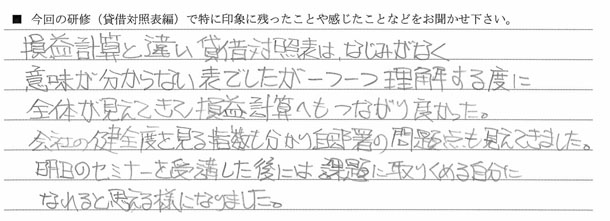 ■ 今回の研修（貸借対照表編）で特に印象に残ったことや感じたことなどをお聞かせ下さい。
損益計算と違い貸借対照表は、なじみがなく
意味が分からない表でしたが一つ一つ理解する度に
全体が見えてきて損益計算へもつながり良かった。
会社の健全度を見る指数も分かり自部署の問題点も見えてきました。
明日のセミナーを受講した後には課題に取りくめる自分に
なれると思える様になりました。